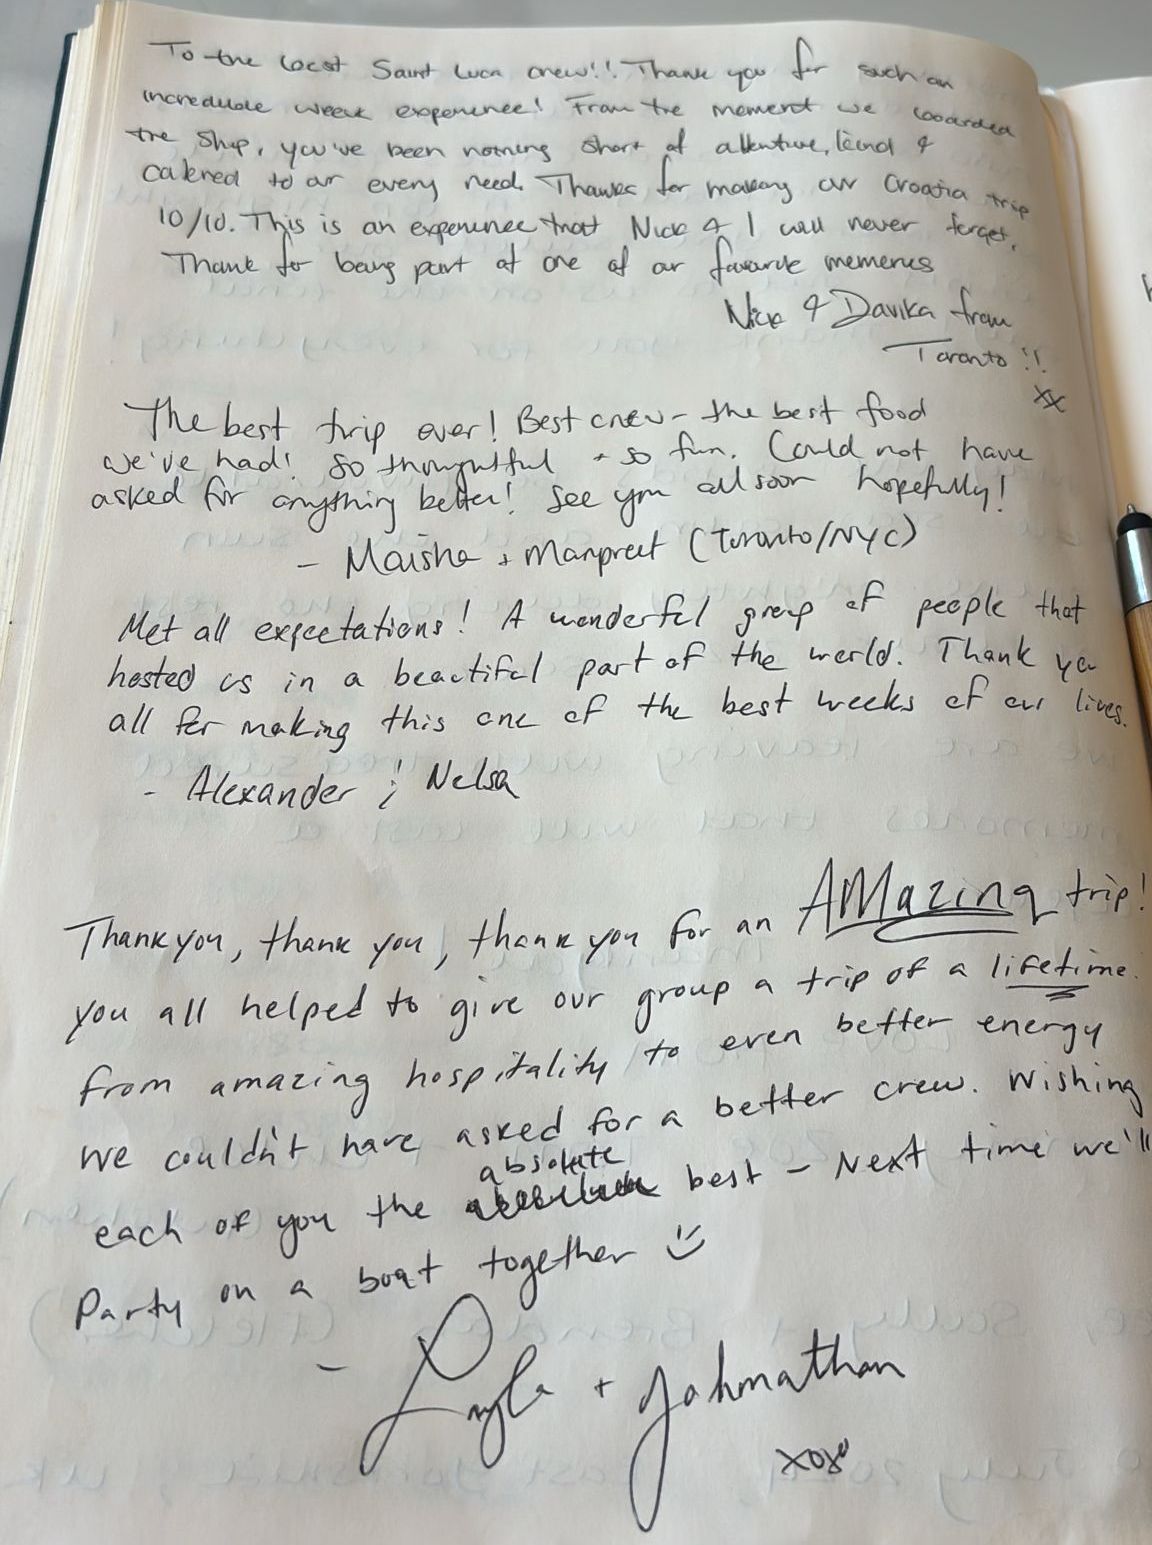 To the best Saint Luca crew!! Thank you for such an
incredible week experience! From the moment we boarded
the ship, you've been nothing short of attentive, kind &
catered to our every need. Thanks for making our Croatia trip
10/10. This is an experience that Nick & I will never forget.
Thank for being part of one of our favourite memories
Nick & Davika from
Toronto!!
xx
The best trip ever! Best crew - the best food
we've had! So thoughtful + so fun. Could not have
asked for anything better! See you all soon hopefully!
- Maisha + Manpreet (Toronto/NYC)
Met all expectations! A wonderful group of people that
hosted us in a beautiful part of the world. Thank you
all for making this one of the best weeks of our lives.
- Alexander & Nelsa
Thank you, thank you, thank you for an AMazing trip!
you all helped to give our group a trip of a lifetime.
From amazing hospitality to even better energy
we couldn't have asked for a better crew. Wishing
each of you the absolute best - Next time we'll
Party on a boat together
- Layla + Johmathan
xoxo